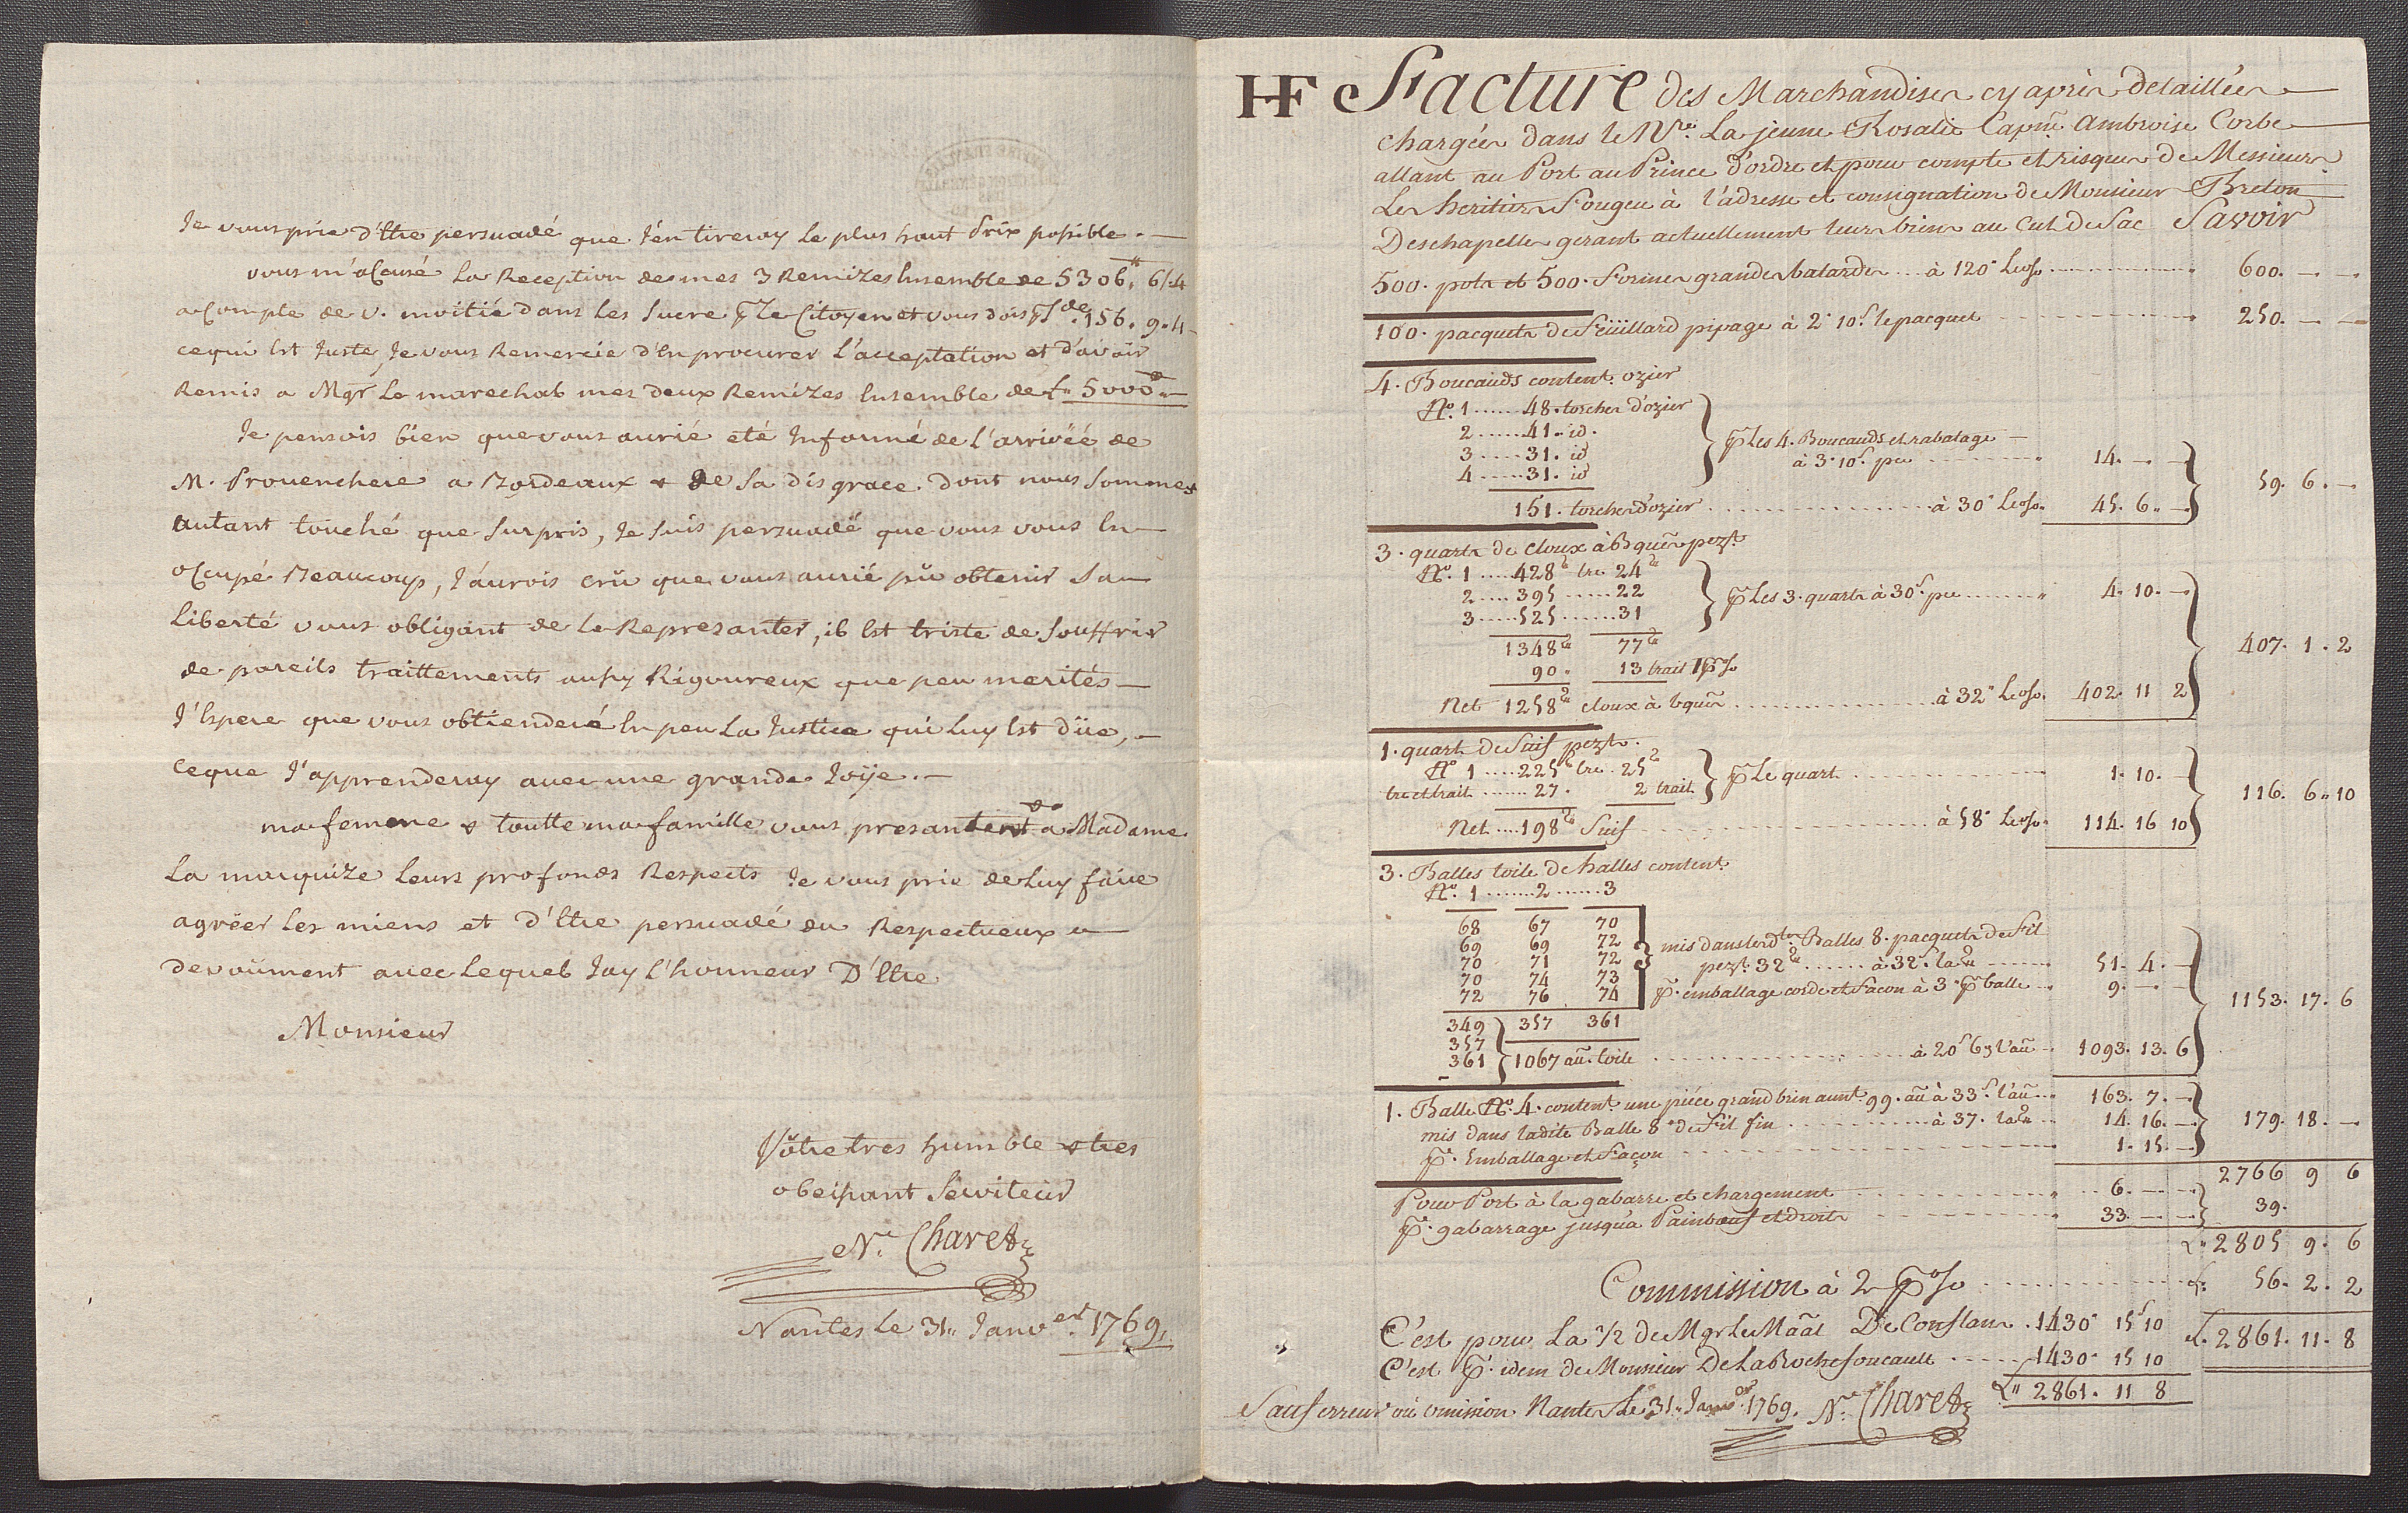 Je vous prie d'Etre persuadé que J'en tireray Le plus haut Prix possible. —
vous m'aCcusé La Reception de mes 3 Remizes Ensemble de 5306.tt 6/.4
a Compte de v. moitié dans Les Sucre p Le Citoyen et vous dois p Sde 156. 9. 4
cequi Est Juste, Je vous Remercie d'En procurer L'acceptation et d'avoir
Remis a Mgr Le marechal mes deux Remizes Ensemble de £. 5000.tt —
Je pensois bien que vous aurié eté Informé de L'arrivéé de
M. Provenchere a Bordeaux & de Sa disgrace. dont nous Sommes
autant touché que Surpris, Je Suis persuadé que vous vous En —
oCcupé Beaucoup, J'aurois crû que vous aurié pû obtenir Sa —
Liberté vous obligant de Le Reprezanter, il Est triste de Souffrir
de pareils traittements aussy Rigoureux que peu merités —
J'Espere que vous obtienderé En peu La Justice qui Luy Est düe, —
Ceque J'apprenderay avec une grande Joÿe. —
ma femme & toutte ma famille vous presantent & a Madame
La marquize Leurs profonds Respects Je vous prie de Luy faire
agréer Les miens et d'Etre persuadé du Respectueux —
devoüment avec Lequel Jay L'honneur D'Etre
Monsieur
Vôtre tres humble & tres
obeissant Serviteur
Nes. Charet
Nantes Le 31. Janver. 1769.
HF Facture des Marchandises cy après detaillées —
chargées dans le Nre. La jeune Rosalie Capne Ambroise Corbe —
allant au Port au Prince d'ordre et pour compte et risques de Messieurs
Les heritiers Fougeu à l'adresse et consignation de Monsieur Breton
Deschapelles gerant actuellement leurs biens au Cul de Sac Savoir
500. pots et 500. Formes grandes batardes .... à 120" Le o/o ........ 600. — —
100. pacquets de Feüillard pipage à 2" 10s. le pacquet ........ 250. — —
4. Boucauds content. ozier
No. 1 ...... 48. torches d'ozier
2 ...... 41. id.
3 ...... 31. id
4 ...... 31. id
p Les 4. Boucauds et rabatage —
à 3" 10s. pce ........ 14. — —
151. torches d'ozier ........ à 30" Le o/o. 45. 6. — 59. 6. —
3. quarts de Cloux à Bques pezt.
No. 1 ..... 428 tre. 24
2 ..... 395 ...... 22
3 ..... 525 ...... 31
p Les 3. quarts à 30s. pce ...... 4. 10. —
1348 77
90. 13 trait 1 p o/o
Net 1258 cloux à bques ........ à 32" Le o/o. 402. 11 2 407. 1. 2
1. quart de Suif pezt.
No 1 ..... 225 tre. 25
tre et trait ...... 27. 2 trait
p Le quart ........ 1. 10. —
Net .... 198 Suif ........ à 58" Le o/o. 114. 16 10 116. 6. 10
3. Balles toile de halles content.
No. 1 ....... 2 ....... 3
68 67 70
69 69 72
70 71 72
70 74 73
72 76 74
mis dans lesdtes Balles 8. pacquets de Fil
pezt. 32 ...... à 32s. la ...... 51. 4. —
pr. emballage corde et Facon à 3" p balle .. 9. — —
349 357 361
357
361 1067 au. toile ........ à 20s 6d l'au. 1093. 13. 6 1153. 17. 6
1. Balle No. 4. content. une piéce grand brin aunt. 99. au. à 33s. l'au... 163. 7. —
mis dans ladite Balle 8 de Fil fin ........ à 37. la .. 14. 16. — 179. 18. —
pr. Emballage et Façon ........ 1. 15. —
2766 9 6
Pour Port à la gabarre et chargement ........ 6. — —
pr. gabarrage jusqu'à Painbœuf et droits ........ 33. — — 39.
£. 2805 9. 6
Commission à 2 p o/o ........ £. 56. 2. 2
C'est pour La 1/2 de Mgr Le Maal De Conflans . 1430" 15 10 £. 2861. 11. 8
C'est pr. idem de Monsieur De LaRochefoucault ..... 1430" 15 10
£" 2861. 11 8
Sauf erreur ou omission Nantes Le 31. Janver. 1769. Nes Charet